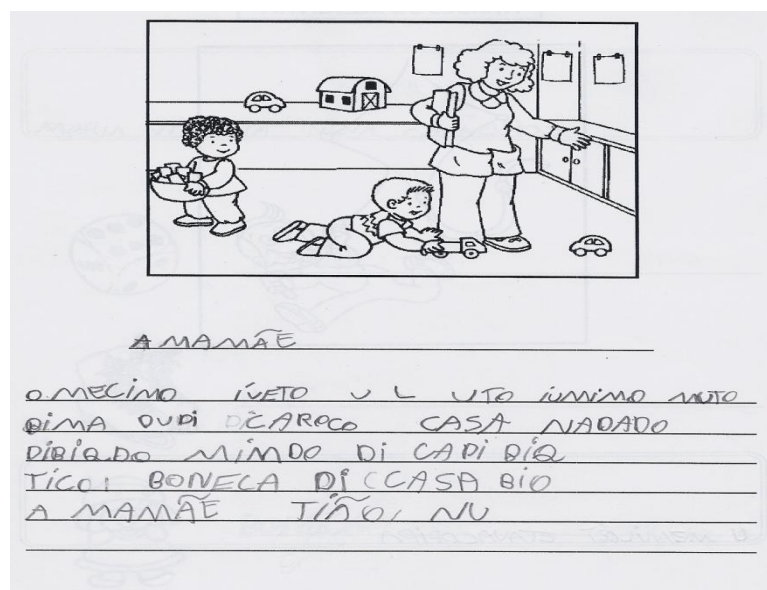 A MAMÃE
O MECIMO ÍVETO U L UTO IUMIMO MUTO
DIMA DUDI DICAROCO CASA NADADO
DIBIQDO MIMDO DI CAPI BIQ
TICO BONECA DI CCASA BIO
A MAMÃE TIÃO, NU